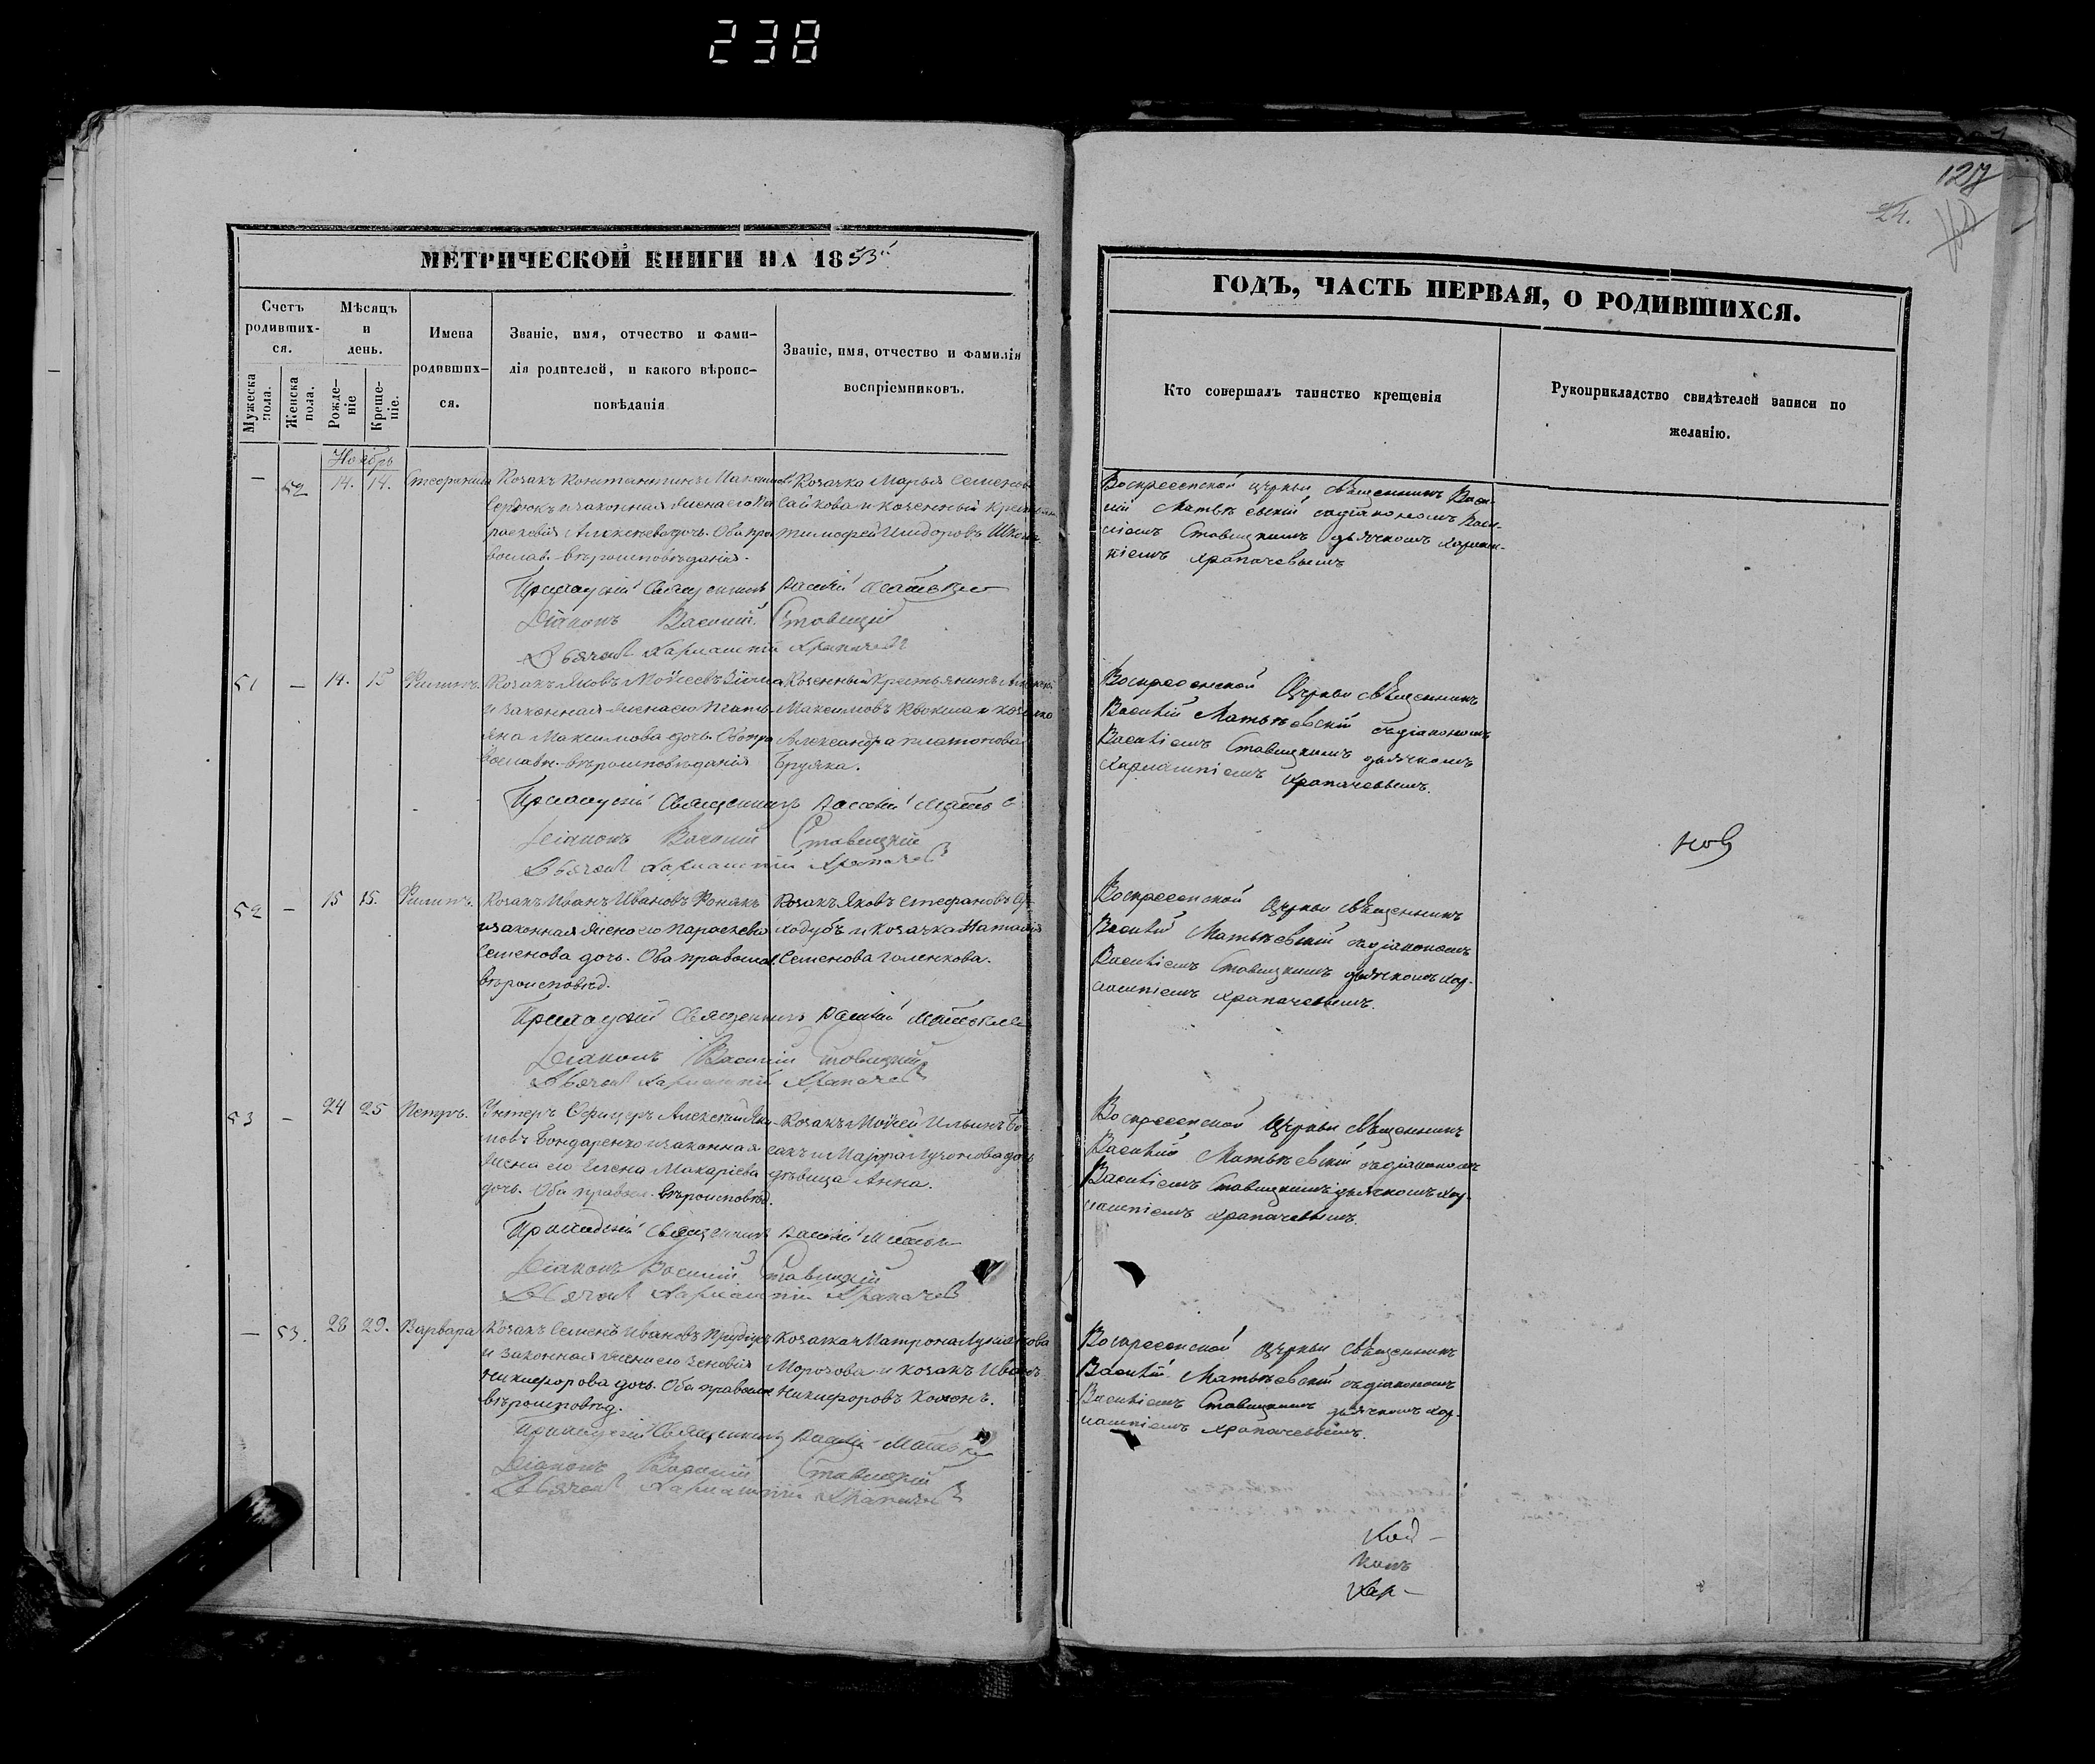 238
127
24.
МЕТРИЧЕСКОЙ КНИГИ НА 1853й
ГОДЪ, ЧАСТЬ ПЕРВАЯ, О РОДИВШИХСЯ.
Счетъ родившихся.
Мужеска пола.
Женска пола.
Мѣсяцъ и день.
Рожденіе
Крещеніе.
Имена родившихся.
Званіе, имя, отчество и фамилія родителей, и какого вѣроисповѣданія
Званіе, имя, отчество и фамилія воспріемниковъ.
Кто совершалъ таинство крещенія
Рукоприкладство свидѣтелей записи по желанію.
Ноябрь
— 52 14. 14.
Козакъ Константинъ
и законная жена его Па
раскевія Алексѣева дочь. Оба пра
вослав. вѣроисповѣданія.
Козачка Марья Семенов
Сайкова и казенный
Тимофей Исидоровъ
Воскресенской церкви священникъ Васи-
лій Матвѣевскій съ діакономъ Васи-
ліемъ Ставицкимъ дьячкомъ Харлам-
піемъ Храпачевымъ
Приходскій Священникъ Василій
Діаконъ Василій Ставицкій
Дьячокъ Харлампій Храпачевъ
51 — 14. 15 Филипъ.
Козакъ Яковъ Мойсеевъ Зима
и законная жена его Тать
яна Максимова дочь. Оба пра
вославн. вѣроисповѣданія
Козенный Крестьянинъ Алексѣй
Максимовъ Квокша и козачка
Александра Платонова
Бруяка.
Воскресенской Церкви священникъ
Василій Матвѣевскій съ діакономъ
Василіемъ Ставицкимъ дьячкомъ
Харлампіемъ Храпачевымъ.
Приходскій Священникъ Василій
Діаконъ Василій Ставицкій
Дьячокъ Харлампій Храпачевъ
52 — 15 15. Филипъ.
Козакъ Иванъ Ивановъ
и законная жена его Параскева
Семенова дочь. Оба православ
вѣроисповѣд.
Козакъ Яковъ Стефановъ
ходубъ и козачка Наталія
Семенова Голенкова.
Воскресенской Церкви священникъ
Василій Матвѣевскій съ діакономъ
Василіемъ Ставицкимъ дьячкомъ Хар-
лампіемъ Храпачевымъ.
Приходскій Священникъ Василій
Діаконъ Василій Ставицкій
Дьячокъ Харлампій Храпачевъ
53 — 24 25 Петръ.
Унтеръ Офицеръ Алексѣй
новъ Бондаренко и законная
жена его Елена Макаріева
дочь. Оба правосл. вѣроисповѣд.
Козакъ Мойсей Ильинъ
дѣвица Анна.
Воскресенской Церкви священникъ
Василій Матвѣевскій съ діакономъ
Василіемъ Ставицкимъ дьячкомъ Хар-
лампіемъ Храпачевымъ.
Приходскій Священникъ Василій
Діаконъ Василій Ставицкій
Дьячокъ Харлампій Храпачевъ
— 53. 28 29. Варвара
Козакъ Семенъ Ивановъ
и законная жена его Зеновія
Никифорова дочь. Оба православ
вѣроисповѣд.
Козачка Матрона Лукіанова
Морозова и козакъ Иванъ
Никифоровъ
Воскресенской Церкви священникъ
Василій Матвѣевскій съ діакономъ
Василіемъ Ставицкимъ дьячкомъ Хар-
лампіемъ Храпачевымъ.
Приходскій Священникъ Василій
Діаконъ Василій Ставицкій
Дьячокъ Харлампій Храпачевъ